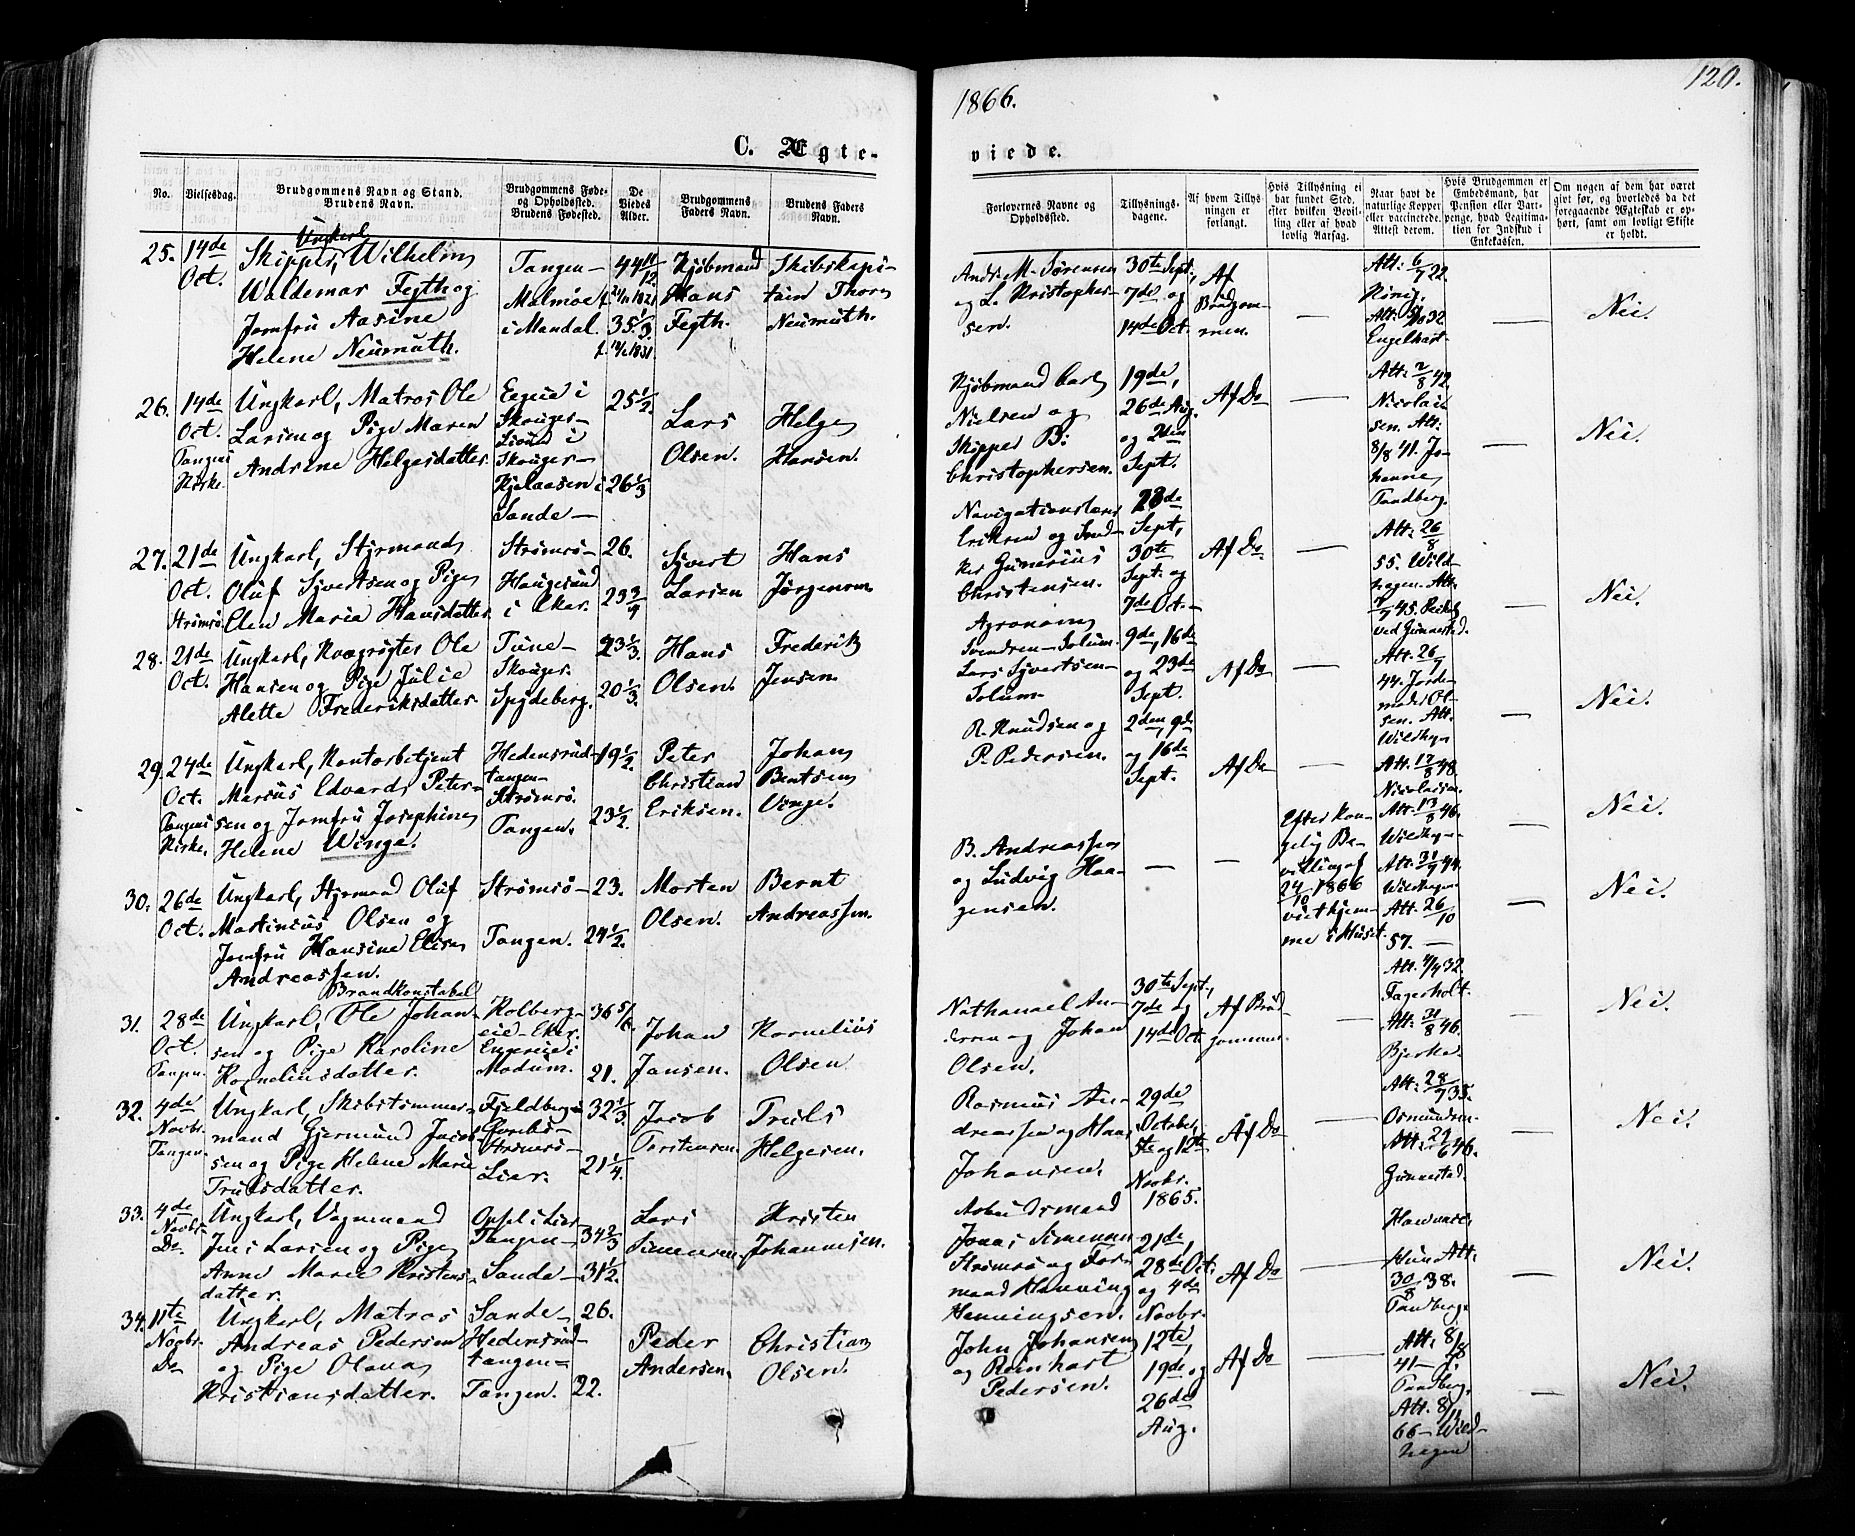 1866.
120.
C. Ægte-
viede.
No.
Vielsesdag.
Brudgommens Navn og Stand.
Brudens Navn.
Brudgommens Føde-
og Opholdssted.
Brudens Fødested.
De
Viedes
Alder.
Brudgommens
Faders Navn.
Brudens Faders
Navn.
Forlovernes Navne og
Opholdssted.
Tillysnings-
dagene.
Af hvem Tillys-
ningen er
forlangt.
Hvis Tillysning ei
har fundet Sted,
efter hvilken Bevil-
ling eller af hvad
lovlig Aarsag.
Naar havt de
naturlige Kopper
eller vaccinerede.
Attest derom.
Hvis Brudgommen er
Embedsmand, har
Pension eller Var-
penge, hvad Legitima-
tion for Indskud i
Enkekassen.
Om nogen af dem har været
gift før, og hvorledes da det
foregaaende Ægteskab er op-
hørt, samt om lovligt Skifte
er holdt.
25.
14de
Oct.
Ungkarl
Skipper, Wilhelm
Waldemar Fegth og
Jomfru Aasine
Helene Neumuth.
Tangen-
Malmøe
i Mandal.
44 11/12
f. 21/11 1821
35 1/3
Kjøbmand
Hans
Fegth.
Skibskapi-
tain Thore
Neumuth.
Andr. M. Sørensen
og L. Kristopher-
sen.
30te Sept,
7de og
14de Oct.
Af
Brudgom-
men.
Att: 6/7 22.
König.
Engelhart
Nei.
26.
14de
Oct.
Tangens
Kirke.
Ungkarl, Matros Ole
Larsen og Pige Maren
Andrine Helgesdatter.
Skouger-
Skouger-
Kjelaasen i
Sande-
25 1/2.
26 1/3
Lars
Olsen.
Helge
Hansen.
Kjøbmand Carl
Nielsen og
Skipper B:
Christophersen.
19de,
26de Aug.
og 2den
Sept.
Af Do
Att: 2/8 42.
Nicolai-
sen. Att:
8/8 41. Jo-
hanne
Tandberg.
Nei.
27.
21de
Oct.
Strømsø.
Ungkarl, Styrmand
Oluf Syvertsen og Pige
Elen Maria Hansdatter.
Strømsø-
Haugesund
i Eker.
26.
23 3/4
Syvert
Larsen
Hans
Jørgensen
Navigationslærer
Eriksen og Sned-
ker Gunerius
Christensen.
23de
Sept,
30te
Sept. og
7de Oct.-
Af Do
Att: 26/8
55. Wild-
hagen. Att.
ved Gunnestad.
Nei.
28.
21de
Oct.
Ungkarl, Kvægrøgter Ole
Hansen og Pige Julie
Alette Frederiksdatter.
Tune-
Skouger.
Spydeberg.
23 1/3.
20 1/3.
Hans
Olsen.
Frederik
Jensen.
Agronom
Svendsen-Solum.
Lars Syvertsen-
Solum.
9de, 16de
og 23de
Sept.
Af Do
Att. 26/7
44. Jorde-
moder Ol-
sen. Att.
Wildhgn
Nei.
29.
24de
Oct.
Tangens
Kirke.
Ungkarl, Kontorbetjent
Marius Edvard Peter-
sen og Jomfru Josephine
Helene Winge.
Hedensrud-
tangen-
Strømsø.
Tangen.
19 1/2.
23 1/2.
Peter
Christian
Eriksen.
Johan
Bentsen
Vinge.
R. Knudsen og
P. Pedersen.
2den, 9de
og 16de
Sept.
Af Do
Att: 17/8 48.
Nicolaisen.
Att: 13/8 46.
Wildhgn-
Nei.
30.
26de
Oct.
Ungkarl, Styrmand Oluf
Martinius Olsen og
Jomfru Hansine Elise
Andreassen.
Strømsø-
Tangen.
23.
24 1/2.
Morten
Olsen.
Bernt
Andreassen.
B. Andreassen
og Ludvig Haa-
gensen.
Efter kon-
gelig Be-
villing af
24/10 1866
viet hjem-
me i Huset.
Att: 31/7 44.
Wildhagen
Att: 26/10
57. -
Nei.
31.
28de
Oct.
Tangen.
Brandkonstabel
Ungkarl, Ole Johan-
sen og Pige Karoline
Korneliusdatter.
Kolberg-
eie- Eker.
Modum.
36 5/6
21.
Johan
Jansen.
Kornelius
Olsen
Nathanael An-
dersen og Johan
Olsen.
30te Sept,
7de og
14de Oct.
Af Brud-
gommen
Att. 4/9 32.
Fagerholt.
Att: 31/8 46.
Bjerke.
Nei.
32.
4de
Novbr.
Tangen.
Ungkarl, Skibstømmer-
mand Gjermund Jacob-
sen og Pige Helene Marie
Trulsdatter.
Strømsø-
Lier.
32 1/3
21 1/4
Jacob
Torstensen
Truls
Helgesen.
Rasmus An-
dreassen og Hans
Johansen.
29de
October,
5te og 12te
Novbr.
1865.
Af Do
Att: 28/7 35.
Osmundsen
Att: 29/6 46.
Gunnestad.
Nei.
33.
4de
Novbr.
Do
Ungkarl, Vognmand
Jens Larsen og Pige
Anne Marie Kristens-
datter.
Opsal i Lier
Tangen-
Sande-
34 2/3
31 1/2.
Lars
Simensen
Kristen
Johannesen.
Jonas Simensen
Strømsø og For-
mand Henning
Henningsen.
21de,
28de Oct.
og 4de
Novbr.
Af Do
Hun Att:
30/8 38.
Tandberg.
Nei.
34.
11te
Novbr.
Do
Ungkarl, Matros
Andreas Pedersen
og Pige Olava
Kristiansdatter.
Sande-
Hedensrud-
tangen-
Tangen.
26.
22.
Peder
Andersen.
Christian
Olsen.
John Johansen
og Reinhart
Pedersen.
12te,
19de og
26de
Aug.
Af Do
Att: 8/8
41- J.
Tandberg.
Att. 8/11
66- Wild-
hagen
Nei.